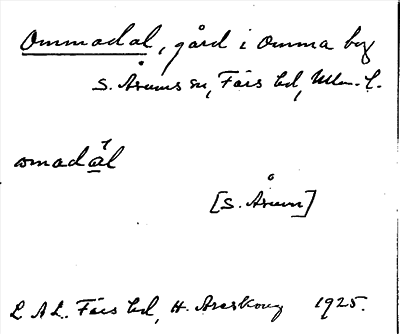 Ommadal, gård i Omma by
S. Åsums sn, Färs hd, Mlm. L.
omadál
[S. Åsum]
L A L. Färs hd, H. Areskoug 1925.